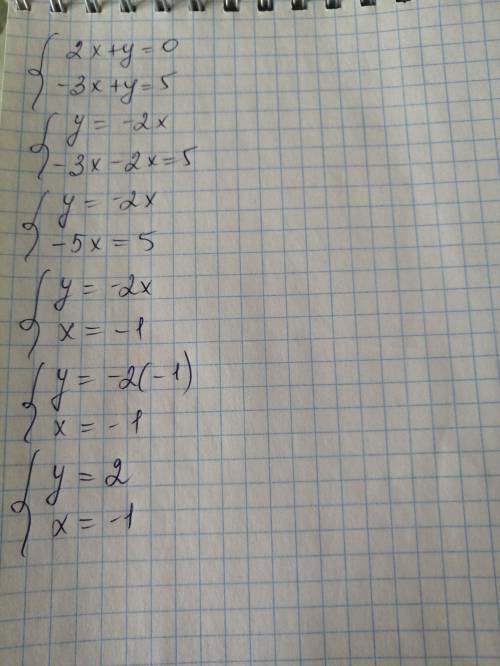 2x+y=0
-3x+y=5
y = -2x
-3x-2x=5
y = -2x
-5x = 5
y = -2x
x = -1
y = -2(-1)
x = -1
y = 2
x = -1